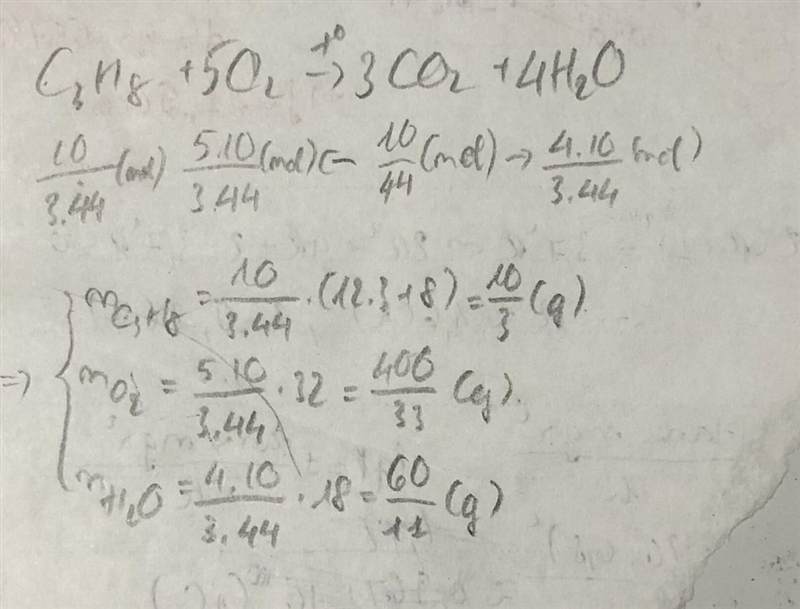 C₃H₈ + 5O₂ →(t°) 3CO₂ + 4H₂O
10/3.44 (mol) 5.10/3.44 (mol) ← 10/44 (mol) → 4.10/3.44 (mol)
m C₃H₈ = 10/3.44 . (12.3+8) = 10/3 (g).
=> { m O₂ = 5.10/3.44 . 32 = 400/33 (g).
m H₂O = 4.10/3.44 . 18 = 60/11 (g)